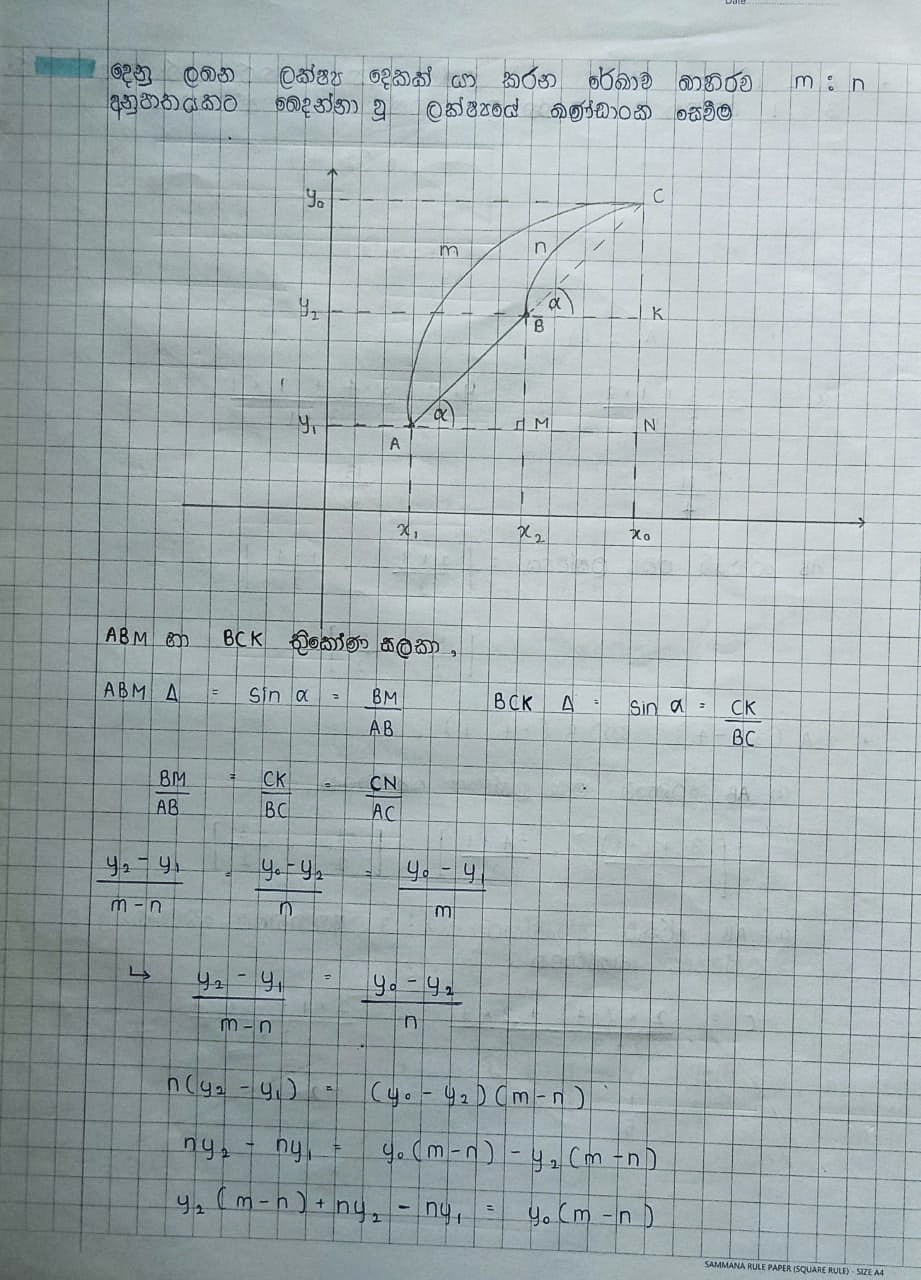 Date
දෙනු ලබන ලක්ෂ්‍ය දෙකක් යා කරන රේඛාව බාහිරව m : n
අනුපාතයකට බෙදන්නා වූ ලක්ෂ්‍යයේ ඛණ්ඩාංක සෙවීම
y₀ C
m n
y₂ α B K
y₁ α A M N
x₁ x₂ x₀
ABM හා BCK ත්‍රිකෝණ සලකා,
ABM Δ = sin α = BM/AB BCK Δ = sin α = CK/BC
BM/AB = CK/BC = CN/AC
(y₂ - y₁)/(m - n) = (y₀ - y₂)/n = (y₀ - y₁)/m
↳ (y₂ - y₁)/(m - n) = (y₀ - y₂)/n
n(y₂ - y₁) = (y₀ - y₂)(m - n)
ny₂ - ny₁ = y₀(m - n) - y₂(m - n)
y₂(m - n) + ny₂ - ny₁ = y₀(m - n)
SAMMANA RULE PAPER (SQUARE RULE) - SIZE A4